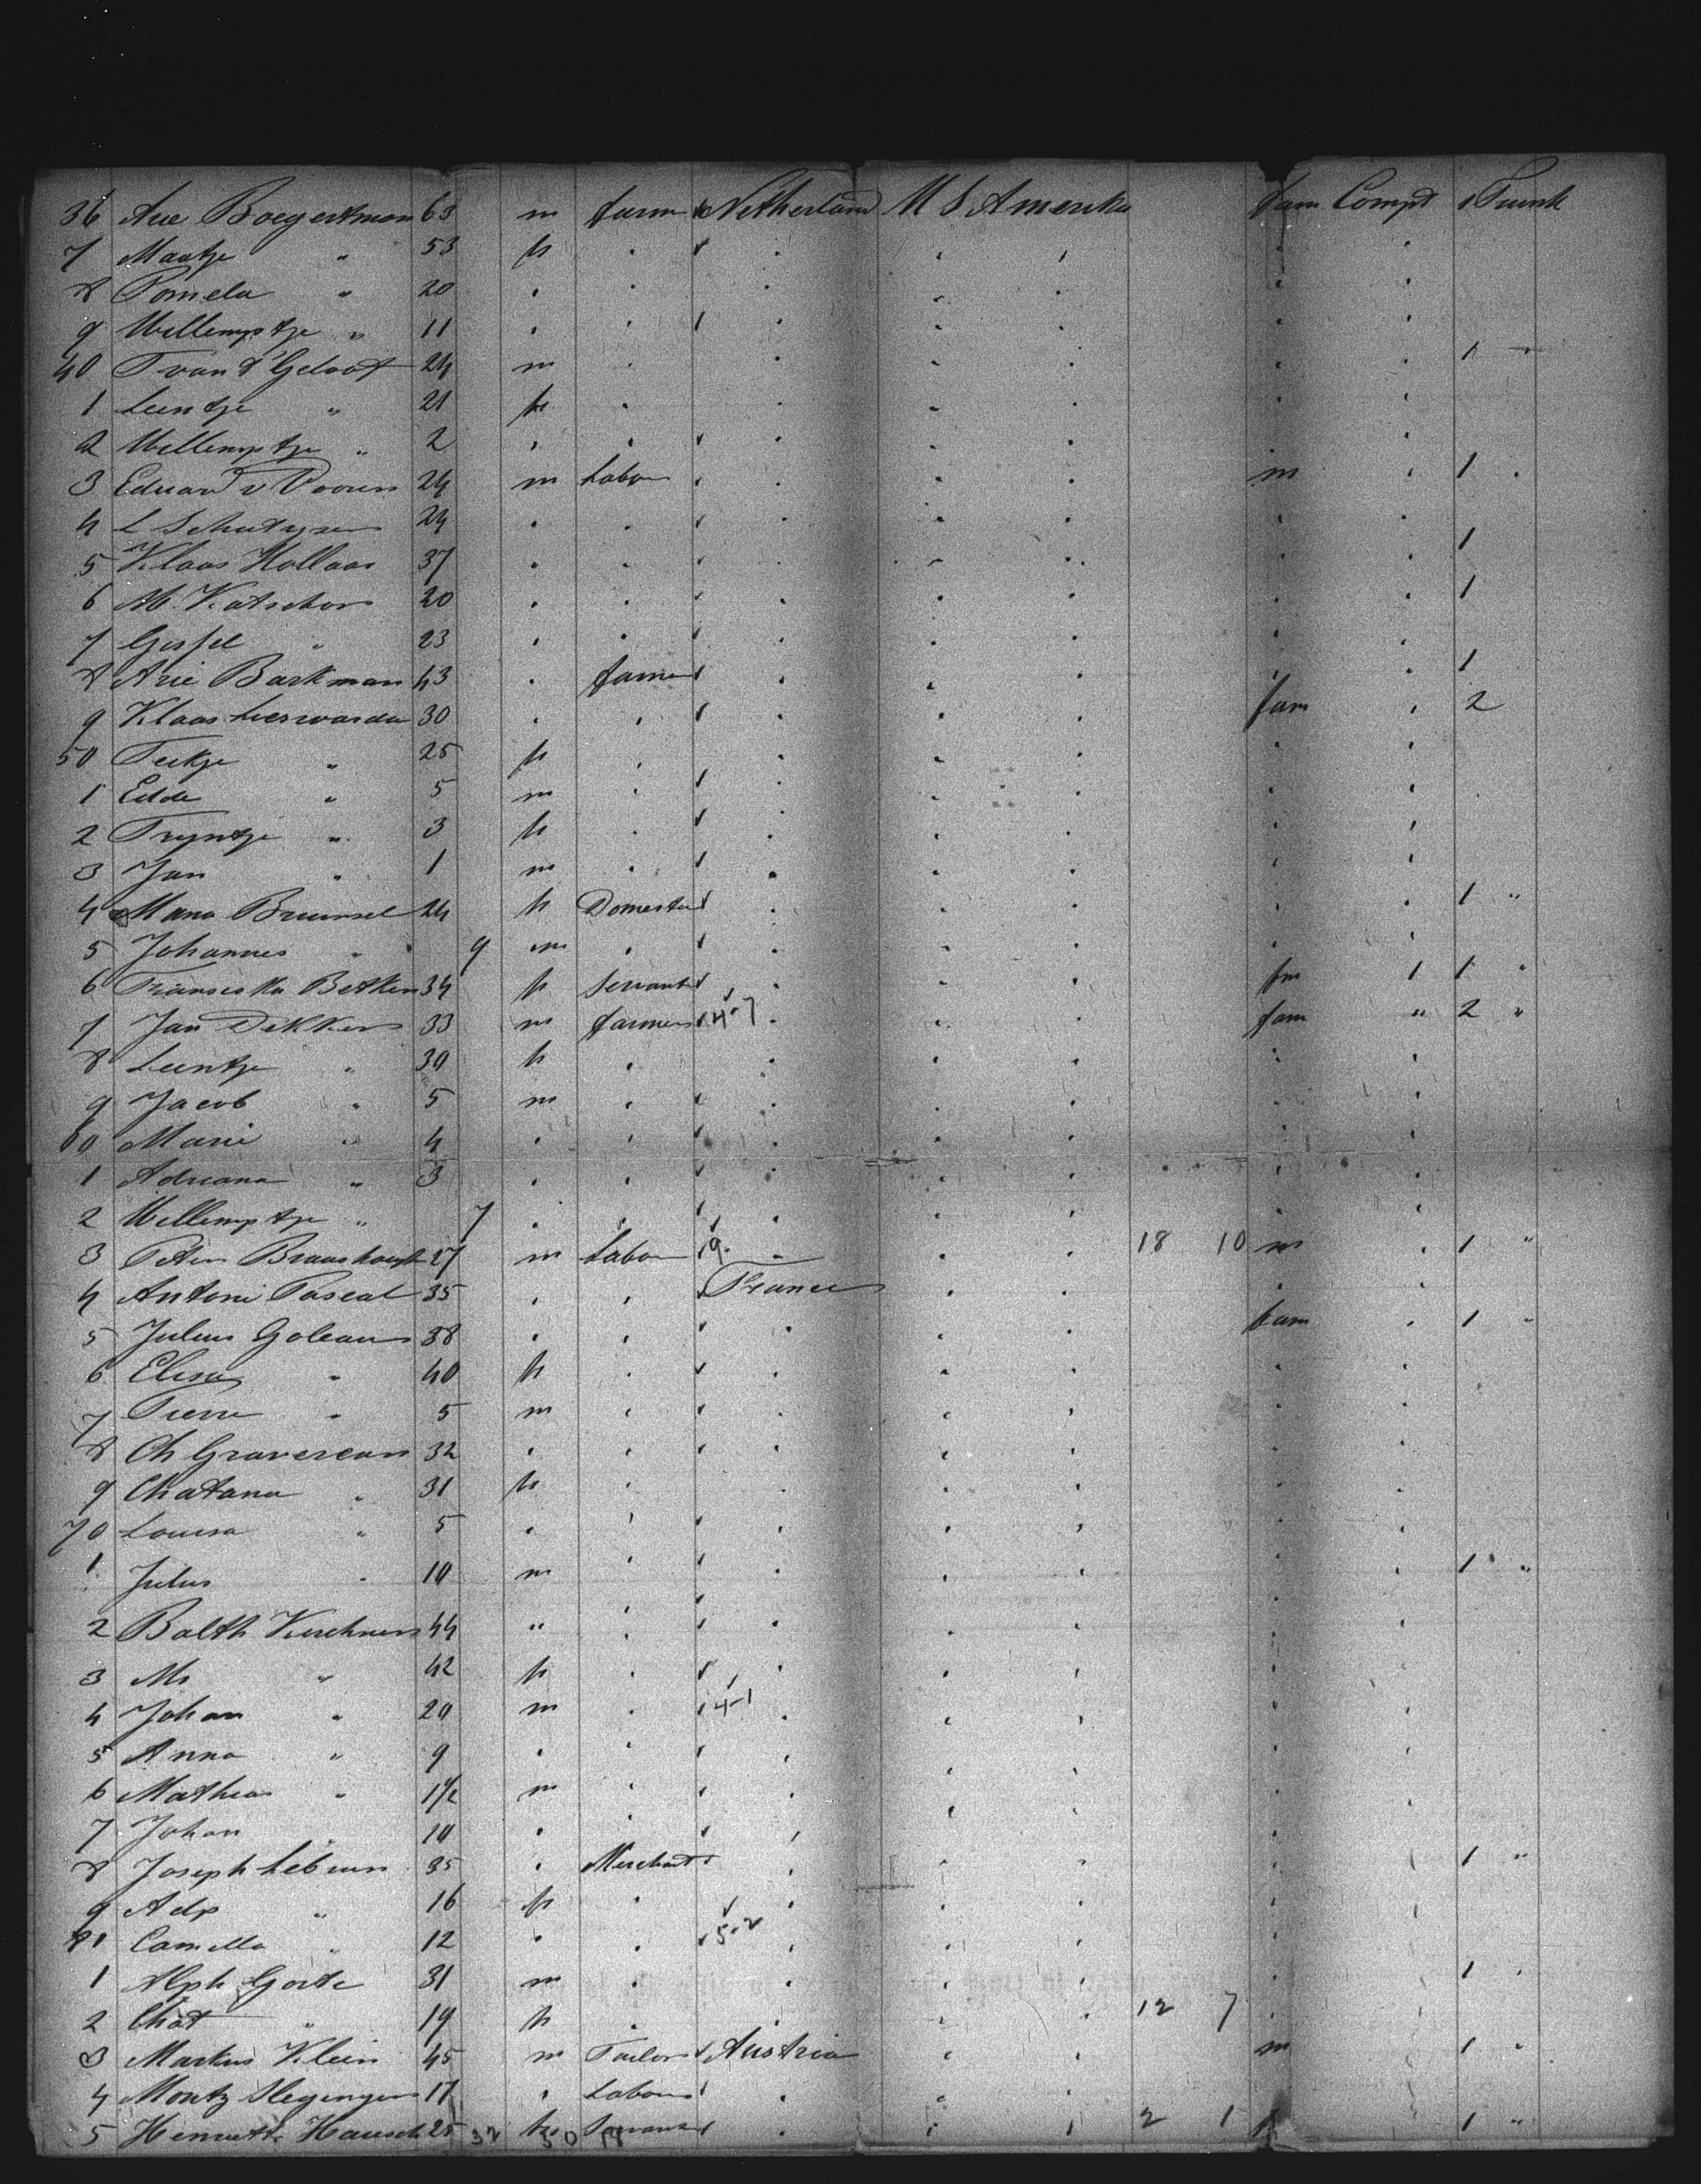 36 Arie Boegertman 63 m farm Netherland U S Amerika fam Compt 1 Trunk
7 Maatje " 53 f
8 Pomela " 20
9 Willemptje " 11
40 T van 't Geloof 24 m 1 "
1 Leentje " 21 f
2 Willemptje " 2
3 Eduard v Vooren 24 m Labor m 1
4 L Schutyser 24
5 Klaas Hollaar 37 1
6 Ab. Katschor 20 1
7 " 23
8 Arie Barkman 43 farmer 1
9 Klaas Leerwarda 30 fam 2
50 Teekje " 25 f
1 Edde " 5 m
2 Tryntje " 3 f
3 Jan " 1 m
4 Maria Bruinsel 24 f Domestic 1 "
5 Johannes " 9 m
6 Fransiska Betken 34 f Servant fm 1 1 "
7 Jan Dekker 33 m farmer 4-7 fam " 2 "
8 Leentje " 30 f
9 Jacob " 5 m
60 Marie " 4
1 Adriana " 3
2 Willemptje " 7
3 Peter 27 m Labor 9 18 10 m 1 "
4 Antoni Pascal 35 France
5 Julius Goleau 38 fam 1 "
6 Elisa " 40 f
7 Pierre " 5 m
8 Ch Gravereau 32
9 Chatana " 31 f
70 Louisa " 5
1 Julus " 10 m 1 "
2 Balth Kirchner 44 "
3 Ms " 42 f
4 Johan " 20 m 4-1
5 Anna " 9
6 Mathias " 1½ m
7 Johan " 10
8 Joseph Lebrun 35 Merchant 1 "
9 Adp " 16 f
81 Camella " 12 5-2
1 Alph Gorte 31 m 1
2 Chat " 19 f 12 7
3 Markus Klein 45 m Tailor Austria m 1 "
4 Moritz 17 Labour
5 Henrietta Hausch 25 32 f 50 Servant 2 1 f 1 "